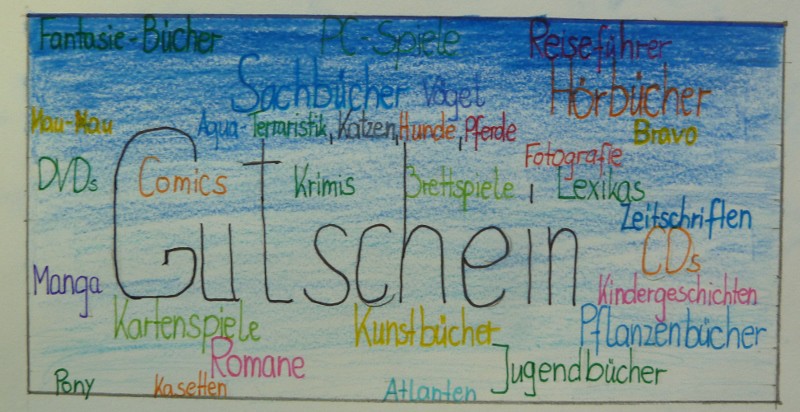 Fantasie-Bücher PC-Spiele Reiseführer
Sachbücher Vögel Hörbücher
Wau-Wau Aqua-Terraristik, Katzen, Hunde, Pferde Bravo
Fotografie
DVDs Comics Krimis Brettspiele Lexikas
Zeitschriften
Gutschein
CDs
Manga Kindergeschichten
Kartenspiele Kunstbücher Pflanzenbücher
Romane Jugendbücher
Pony Kasetten Atlanten